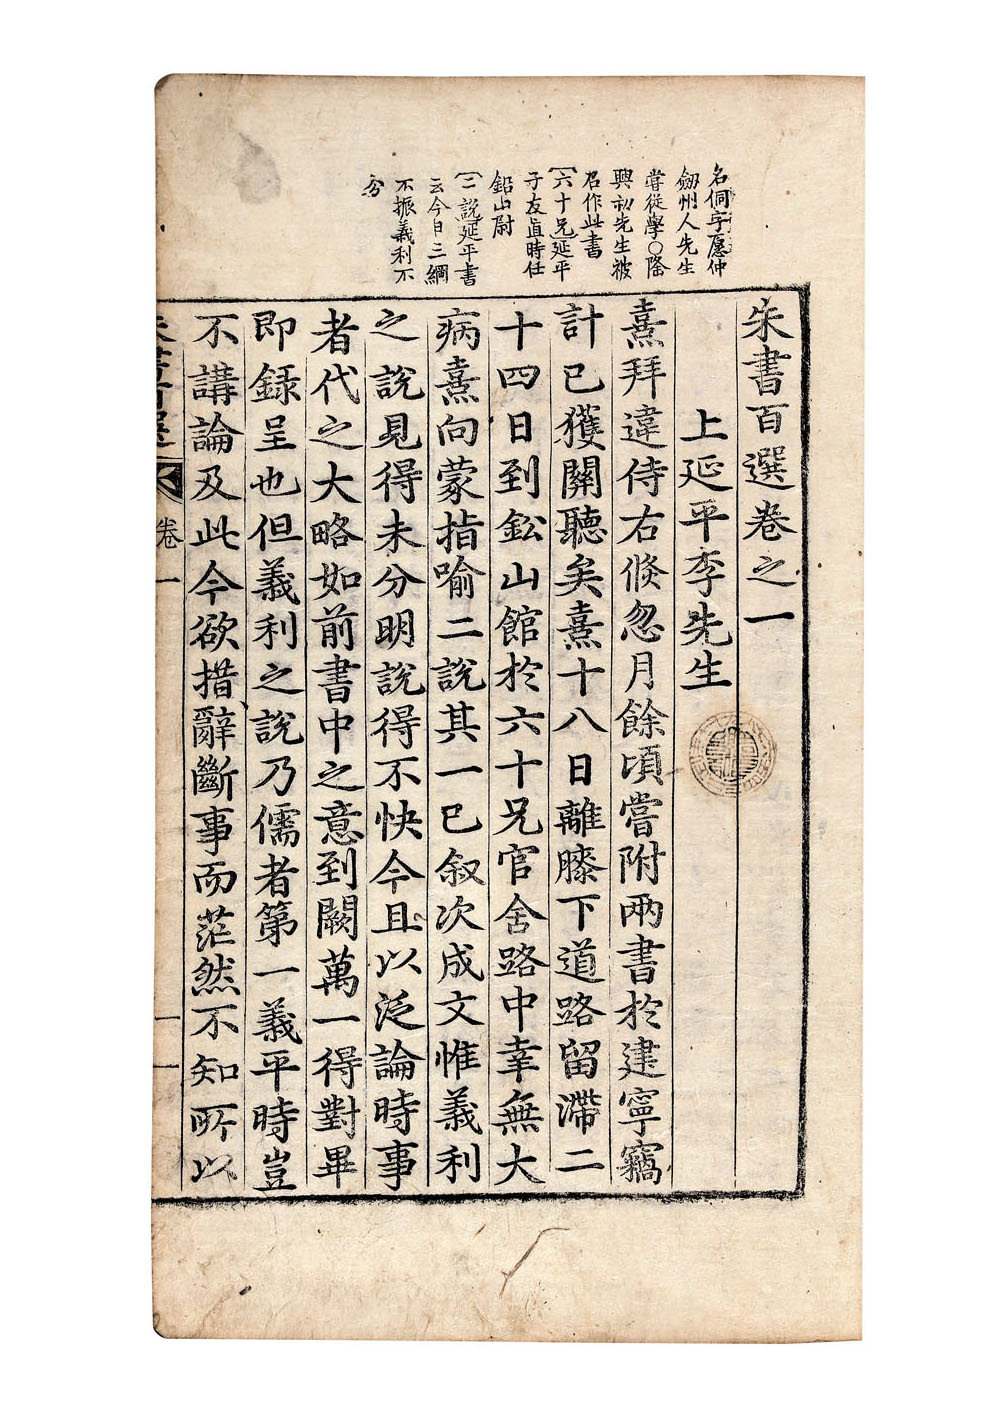 名侗字愿仲
劒州人先生
嘗從學○隆
興初先生被
召作此書
六十兄延平
子友直時任
鉛山尉
二說延平書
云今日三綱
不振義利不
分
朱書百選卷之一
上延平李先生
熹拜違侍右倐忽月餘頃嘗附兩書於建寧竊
計已獲關聽矣熹十八日離膝下道路留滯二
十四日到鈆山館於六十兄官舍路中幸無大
病熹向蒙指喻二說其一已叙次成文惟義利
之說見得未分明說得不快今且以泛論時事
者代之大略如前書中之意到闕萬一得對畢
即録呈也但義利之說乃儒者第一義平時豈
不講論及此今欲措辭斷事而茫然不知所以
卷一
一